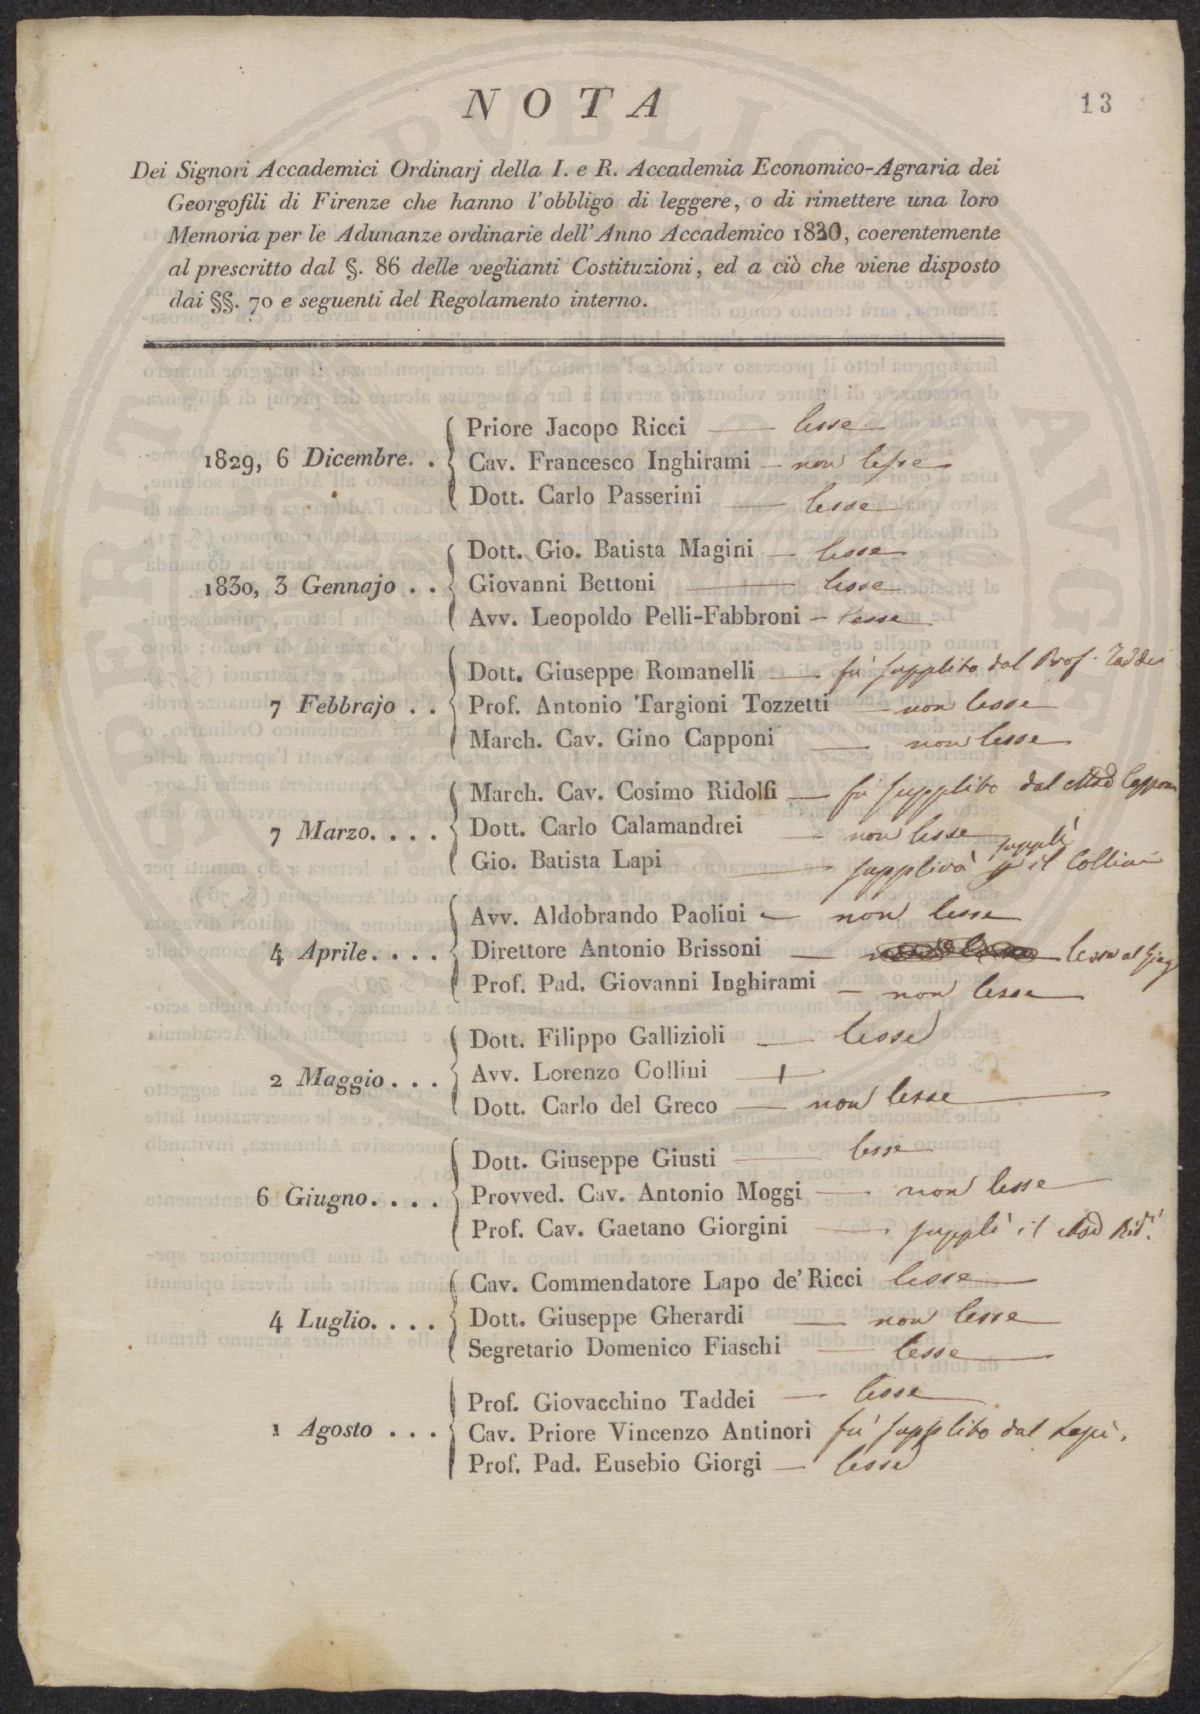 13
NOTA
Dei Signori Accademici Ordinarj della I. e R. Accademia Economico-Agraria dei
Georgofili di Firenze che hanno l'obbligo di leggere, o di rimettere una loro
Memoria per le Adunanze ordinarie dell'Anno Accademico 1830, coerentemente
al prescritto dal §. 86 delle veglianti Costituzioni, ed a ciò che viene disposto
dai §§. 70 e seguenti del Regolamento interno.
Priore Jacopo Ricci — lesse
1829, 6 Dicembre. . Cav. Francesco Inghirami — non lesse
Dott. Carlo Passerini — lesse
Dott. Gio. Batista Magini — lesse
1830, 3 Gennajo . . Giovanni Bettoni — lesse
Avv. Leopoldo Pelli-Fabbroni — lesse
Dott. Giuseppe Romanelli — fu supplito dal Prof. Taddei
7 Febbrajo . . Prof. Antonio Targioni Tozzetti — non lesse
March. Cav. Gino Capponi — non lesse
March. Cav. Cosimo Ridolfi — fu supplito dal Capponi
7 Marzo. . . . Dott. Carlo Calamandrei — non lesse
Gio. Batista Lapi — supplirà supplì il Collini
Avv. Aldobrando Paolini — non lesse
4 Aprile. . . . Direttore Antonio Brissoni — lesse
Prof. Pad. Giovanni Inghirami — non lesse
Dott. Filippo Gallizioli — lesse
2 Maggio. . . Avv. Lorenzo Collini — +
Dott. Carlo del Greco — non lesse
Dott. Giuseppe Giusti — lesse
6 Giugno. . . . Provved. Cav. Antonio Moggi — non lesse
Prof. Cav. Gaetano Giorgini — supplì il Rid.
Cav. Commendatore Lapo de' Ricci lesse
4 Luglio. . . . Dott. Giuseppe Gherardi — non lesse
Segretario Domenico Fiaschi — lesse
Prof. Giovacchino Taddei — lesse
1 Agosto . . . Cav. Priore Vincenzo Antinori fu supplito dal Lapi.
Prof. Pad. Eusebio Giorgi — lesse